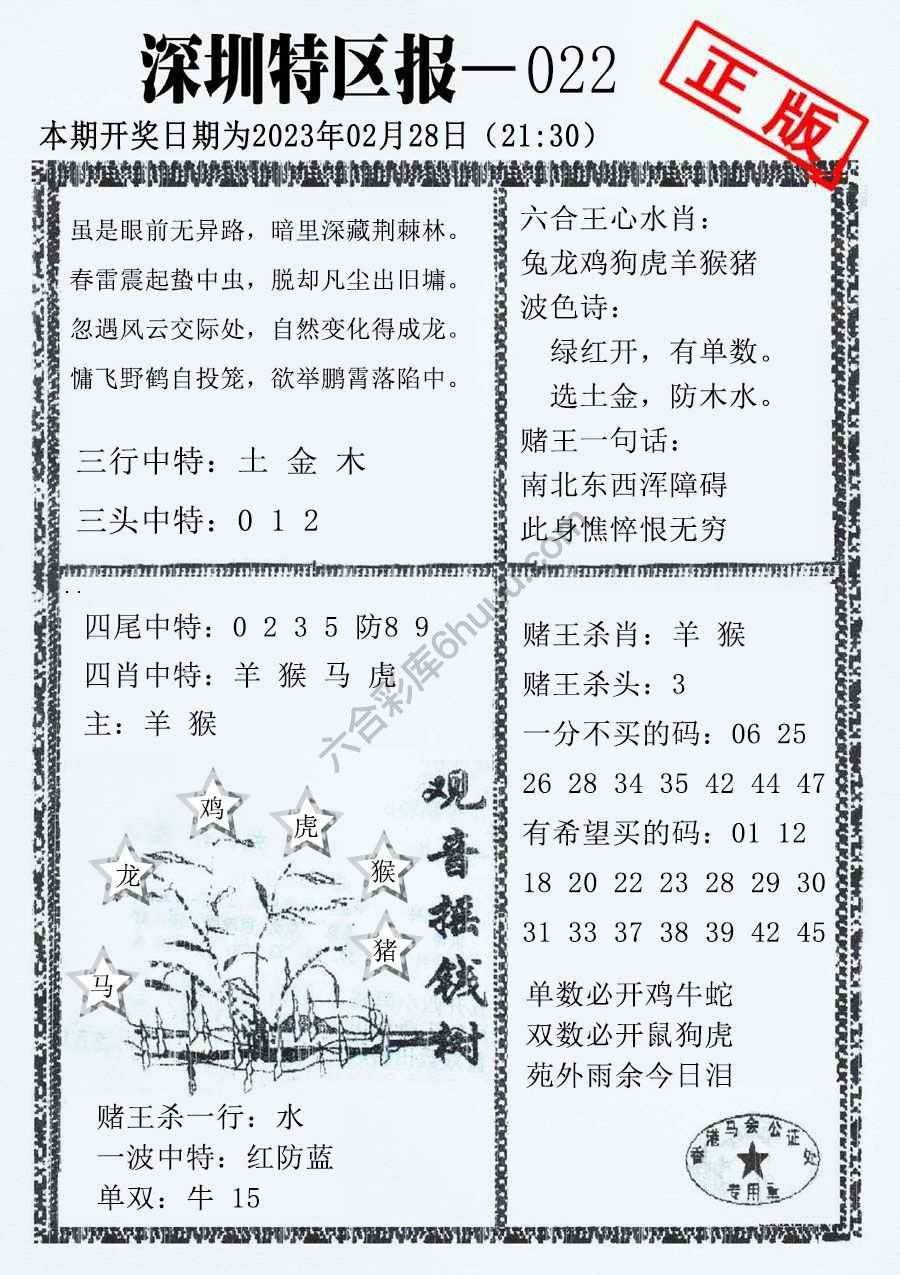 深圳特区报—022
正版
本期开奖日期为2023年02月28日（21:30）
虽是眼前无异路，暗里深藏荆棘林。
春雷震起蛰中虫，脱却凡尘出旧墉。
忽遇风云交际处，自然变化得成龙。
慵飞野鹤自投笼，欲举鹏霄落陷中。
三行中特：土 金 木
三头中特：0 1 2
六合王心水肖：
兔龙鸡狗虎羊猴猪
波色诗：
绿红开，有单数。
选土金，防木水。
赌王一句话：
南北东西浑障碍
此身憔悴恨无穷
四尾中特：0 2 3 5 防8 9
四肖中特：羊 猴 马 虎
主：羊 猴
鸡
虎
龙
猴
猪
马
观音摇钱树
赌王杀一行：水
一波中特：红防蓝
单双：牛 15
赌王杀肖：羊 猴
赌王杀头：3
一分不买的码：06 25
26 28 34 35 42 44 47
有希望买的码：01 12
18 20 22 23 28 29 30
31 33 37 38 39 42 45
单数必开鸡牛蛇
双数必开鼠狗虎
苑外雨余今日泪
香港马会公证处
专用章
六合彩库6huu.com